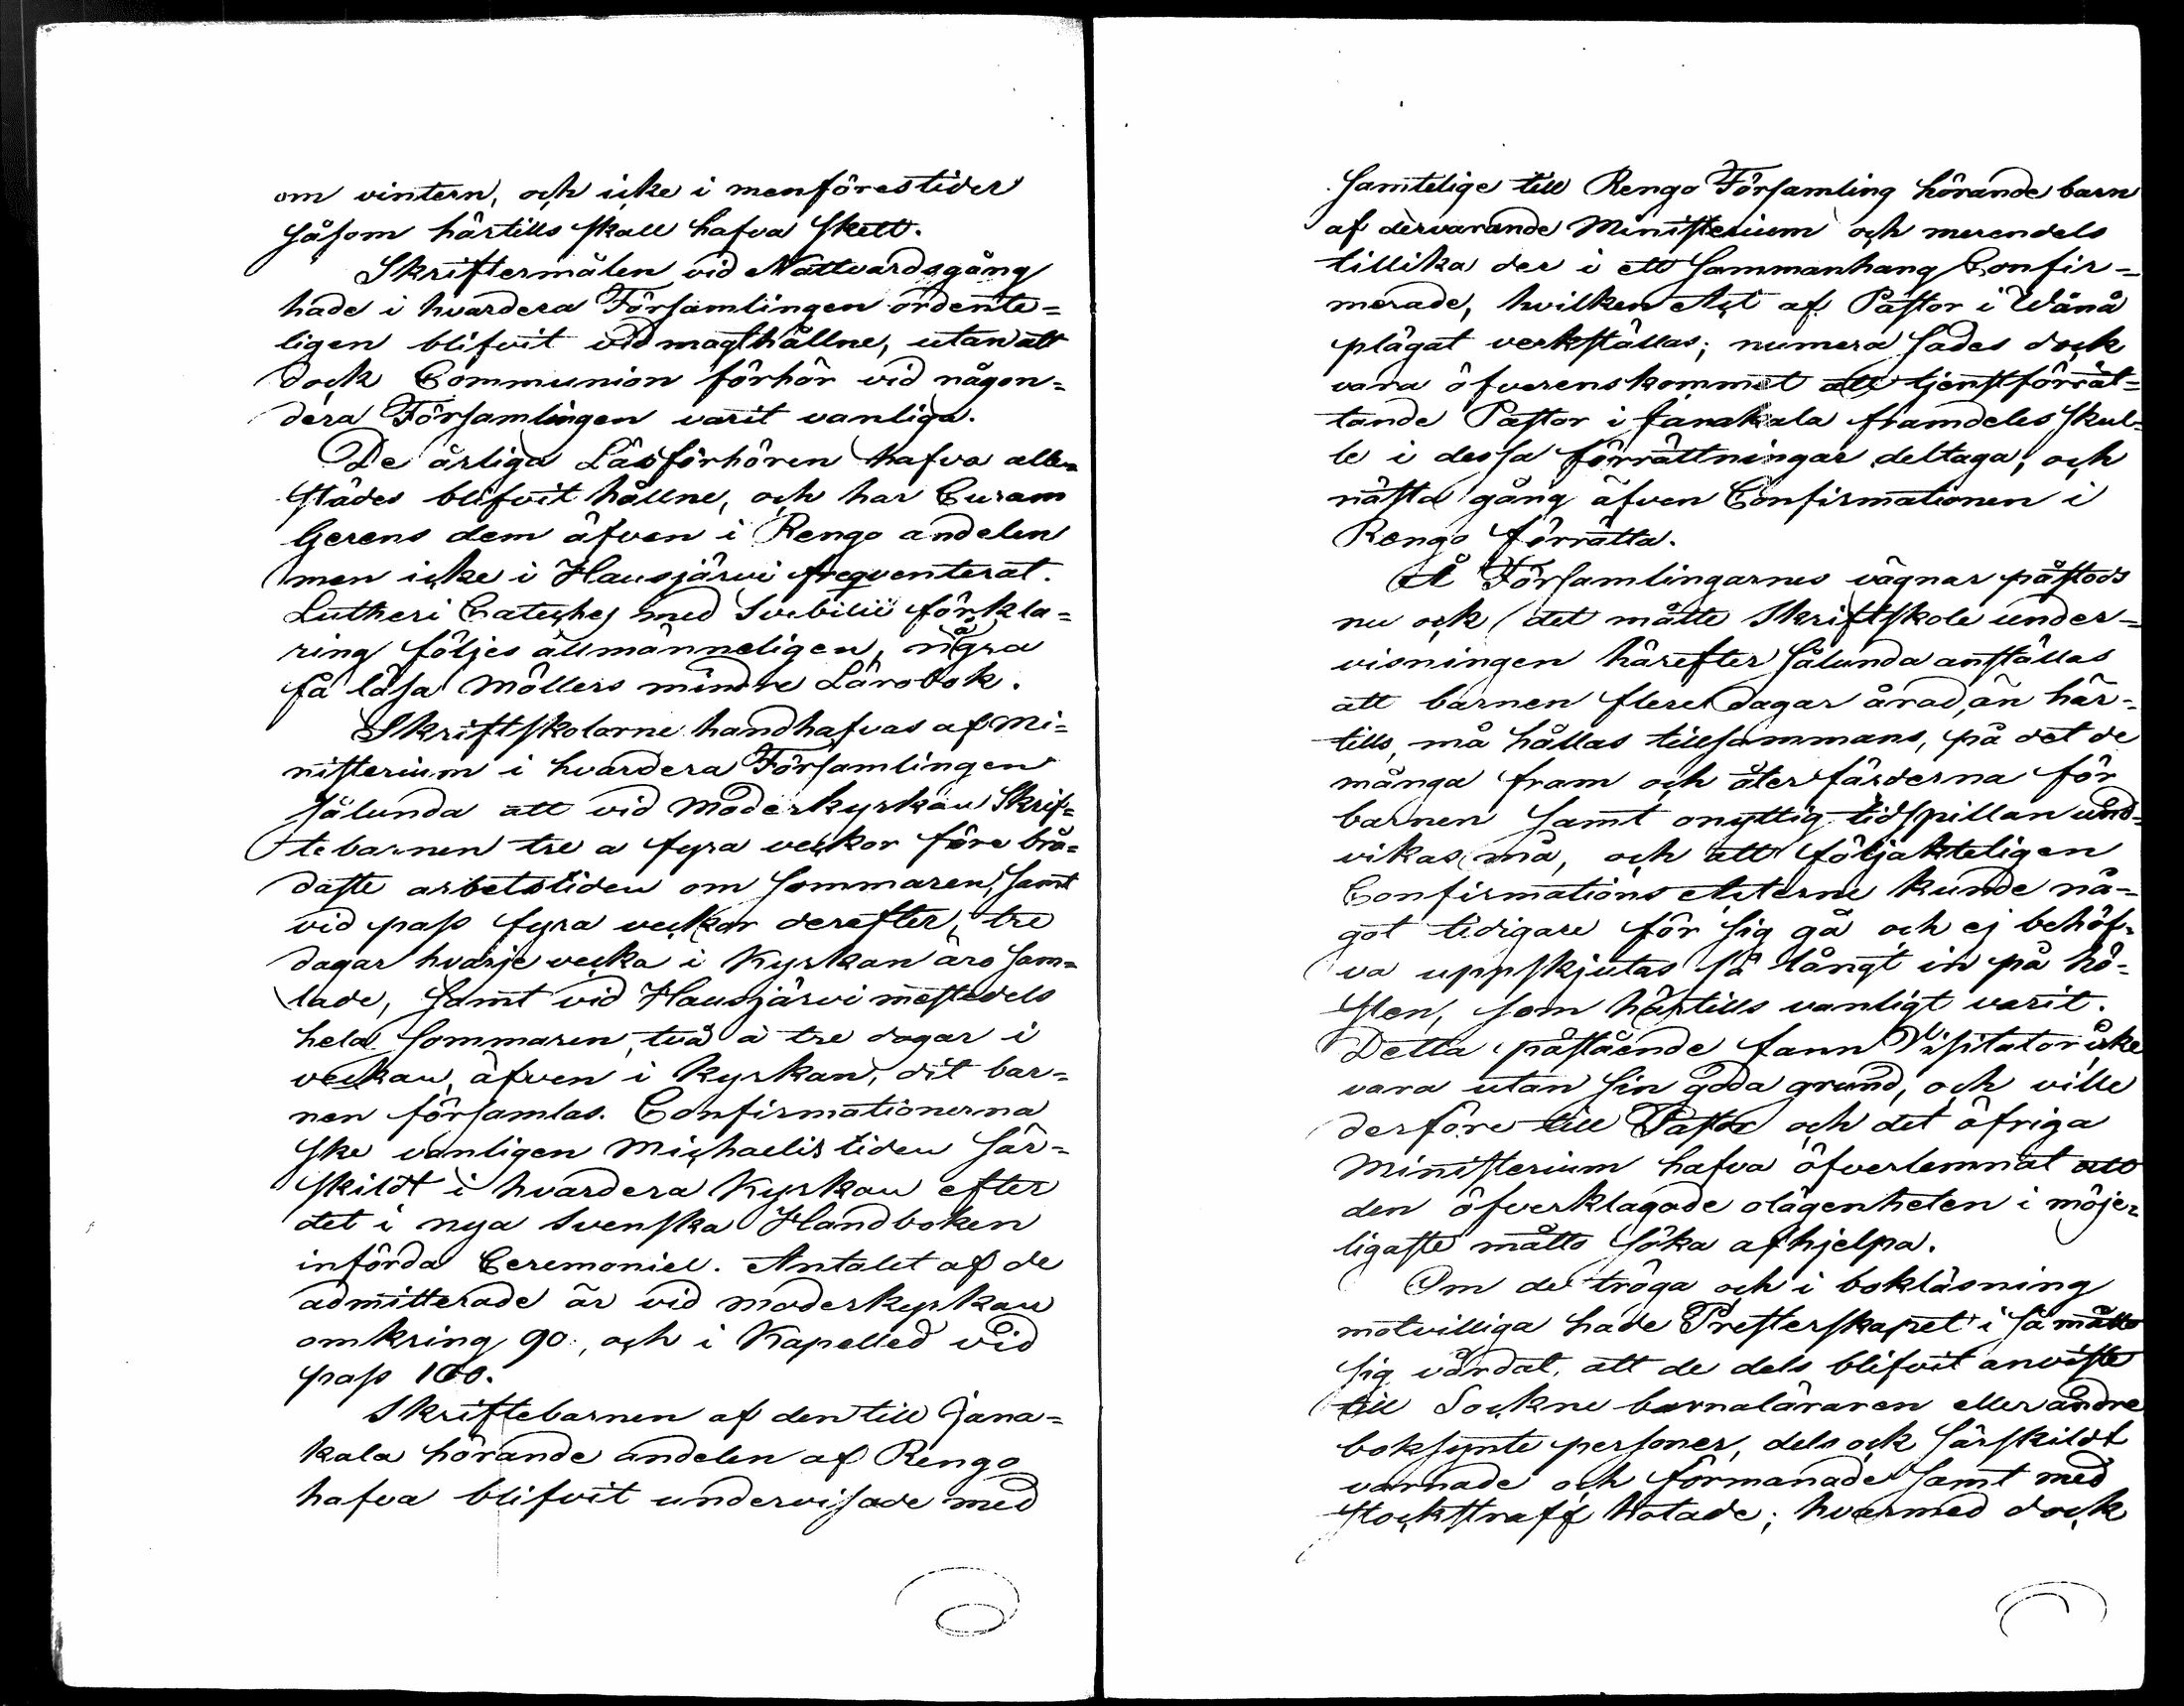 om vintern, och icke i menförestider
såsom härtills skall hafva skett.
Skriftermålen vid Nattvardsgång
hade i hvardera Församlingen ordente=
ligen blifvit vidmagthållne, utan att
dock Communion förhör vid någon=
dera Församlingen varit vanliga.
De årliga Läsförhören hafva alle=
städes blifvit hållne, och har Curam
Gerens dem äfven i Rengo andelen
men icke i Hausjärvi freqventerat.
Lutheri Cateches med Svebilii förkla=
ring följes allmänneligen, några
få läsa Möllers mindre Lärobok.
Skriftskolorne handhafvas af Mi=
nisterium i hvardera Församlingen
sålunda att vid Moderkyrkan Skrif=
tebarnen tre a fyra veckor före brå=
daste arbetstiden om sommaren, samt
vid pass fyra veckor derefter, tre
dagar hvarje vecka i Kyrkan äro sam=
lade, samt vid Hausjärvi mestedels
hela sommaren, två à tre dagar i
veckan, äfven i Kyrkan, dit bar=
nen församlas. Confirmationerna
ske vanligen Michaelis tiden sär=
skildt i hvardera Kyrkan efter
det i nya Svenska Handboken
införda Ceremoniel. Antalet af de
admitterade är vid moderkyrkan
omkring 90., och i Kapellet vid
pass 100.
Skriftebarnen af den till Jana=
kala hörande andelen af Rengo
hafva blifvit undervisade med
samtelige till Rengo Församling hörande barn
af dervarande Ministerium och merendels
tillika der i ett sammanhang Confir=
merade, hvilken Act af Pastor i Wånå
plägat verkställas; numera sades dock
vara öfverenskommet att tjenstförrät=
tande Pastor i Janakala framdeles skul=
le i dessa förrättningar deltaga, och
nästa gång äfven Confirmationen i
Rengo förrätta.
Å Församlingarnes vägnar påstods
nu ock det måtte Skriftskole under=
visningen härefter sålunda anställas
att barnen flere dagar årad, än här=
tills, må hållas tillsammans, på det de
många fram och återfärderna för
barnen samt onyttig tidspillan und=
vikas må, och att följakteligen
Confirmations Acterne kunde nå=
got tidigare för sig gå och ej behöf=
va uppskjutas så långt in på hö=
sten, som härtills vanligt varit.
Detta påstående fann Visitator icke
vara utan sin goda grund, och ville
derföre till Pastor och det öfriga
Ministerium hafva öfverlemnat att
den öfverklagade olägenheten i möje=
ligaste måtto söka afhjelpa.
Om de tröga och i bokläsning
motvilliga hade Presterskapet i så måtto
sig vårdat, att de dels blifvit anviste
till Sockne barnaläraren eller andre
boksynte personer, dels ock särskildt
varnade och förmanade samt med
stockstraff hotade; hvarmed dock